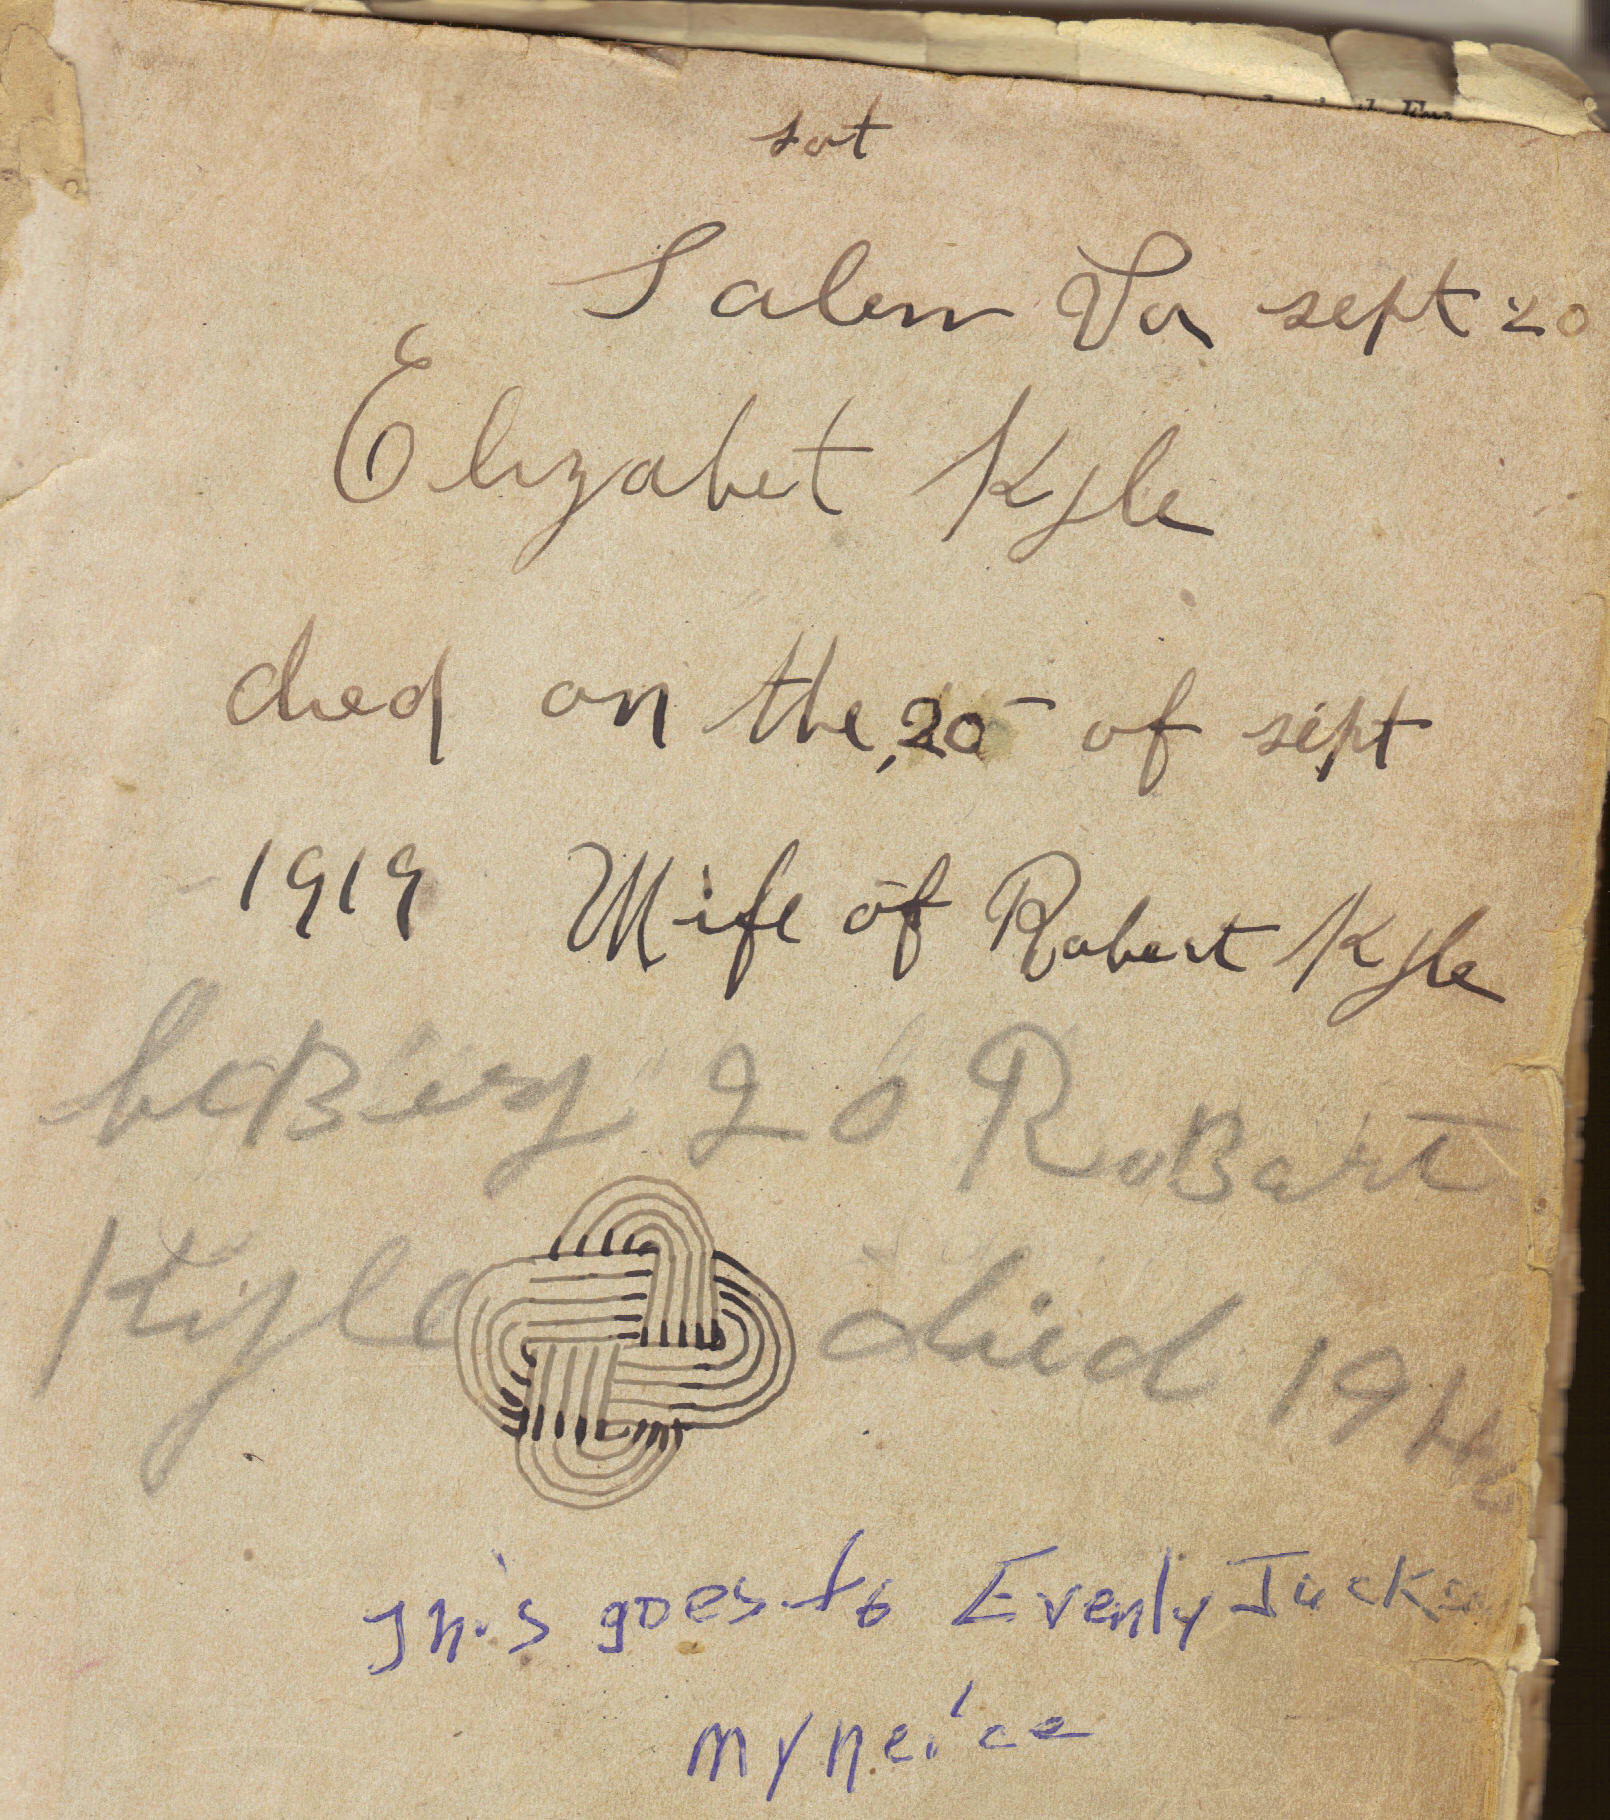 sat
Salem Va sept 20
Elizabet Kyle
died on the, 20 of sept
1919 Wife of Robert Kyle
20 RoBart
Kyle died 194
This goes to Evenly
my neice